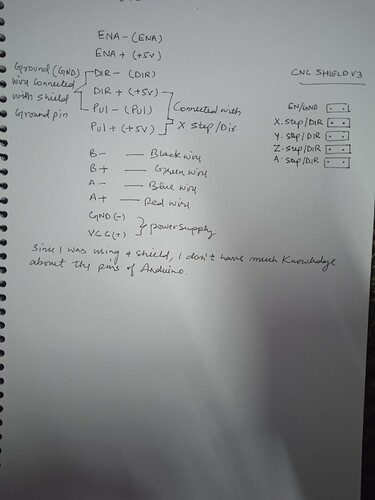 ENA- (ENA)
ENA + (+5V)
Ground (GND)
wire connected
with shield
Ground pin
DIR- (DIR)
DIR + (+5V)
PUL - (PUL)
PUL + (+5V)
Connected with
X Step/Dir
B- — Black wire
B+ — Green wire
A- — Blue wire
A+ — Red wire
GND (-)
VCC (+)
power supply
Since I was using a shield, I don't have much knowledge
about the pins of Arduino.
CNC SHIELD V3
EN/GND
X. Step/DIR
Y. Step/DIR
Z. Step/DIR
A. Step/DIR